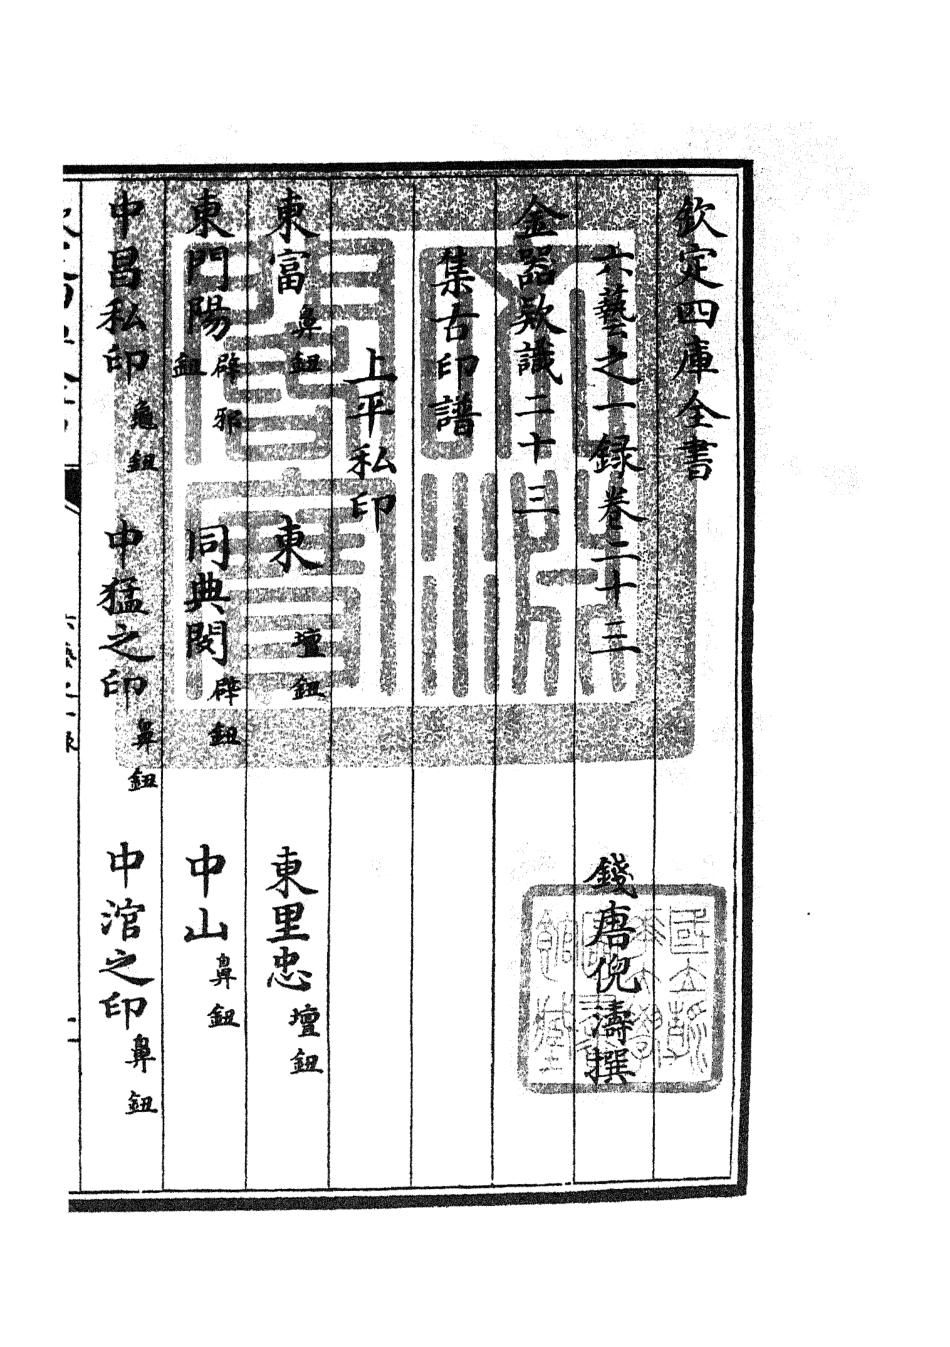 欽定四庫全書
六藝之一録卷二十三
錢唐倪濤撰
金器欵識二十三
集古印譜
上平私印
東富鼻鈕 東壇鈕 東里忠壇鈕
東門陽辟邪鈕 同典閔辟鈕 中山鼻鈕
中昌私印龜鈕 中猛之印鼻鈕 中涫之印鼻鈕